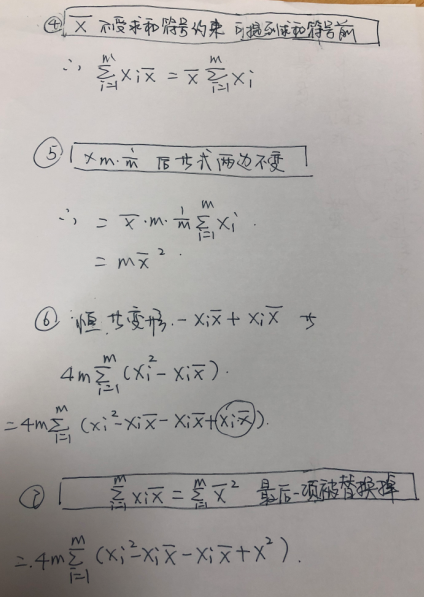 ④ x̄ 不受求和符号约束 可提到求和符号前
∴ ∑_{i=1}^{m} xᵢx̄ = x̄ ∑_{i=1}^{m} xᵢ
⑤ x m·1/m 后等式两边不变
∴ = x̄·m·1/m ∑_{i=1}^{m} xᵢ.
= m x̄².
⑥ 恒等变形. -xᵢx̄ + xᵢx̄
4m ∑_{i=1}^{m} (xᵢ² - xᵢx̄).
= 4m ∑_{i=1}^{m} (xᵢ² - xᵢx̄ - xᵢx̄ + xᵢx̄).
⑦ ∑_{i=1}^{m} xᵢx̄ = ∑_{i=1}^{m} x̄² 最后一项被替换掉
= 4m ∑_{i=1}^{m} (xᵢ² - xᵢx̄ - xᵢx̄ + x²).